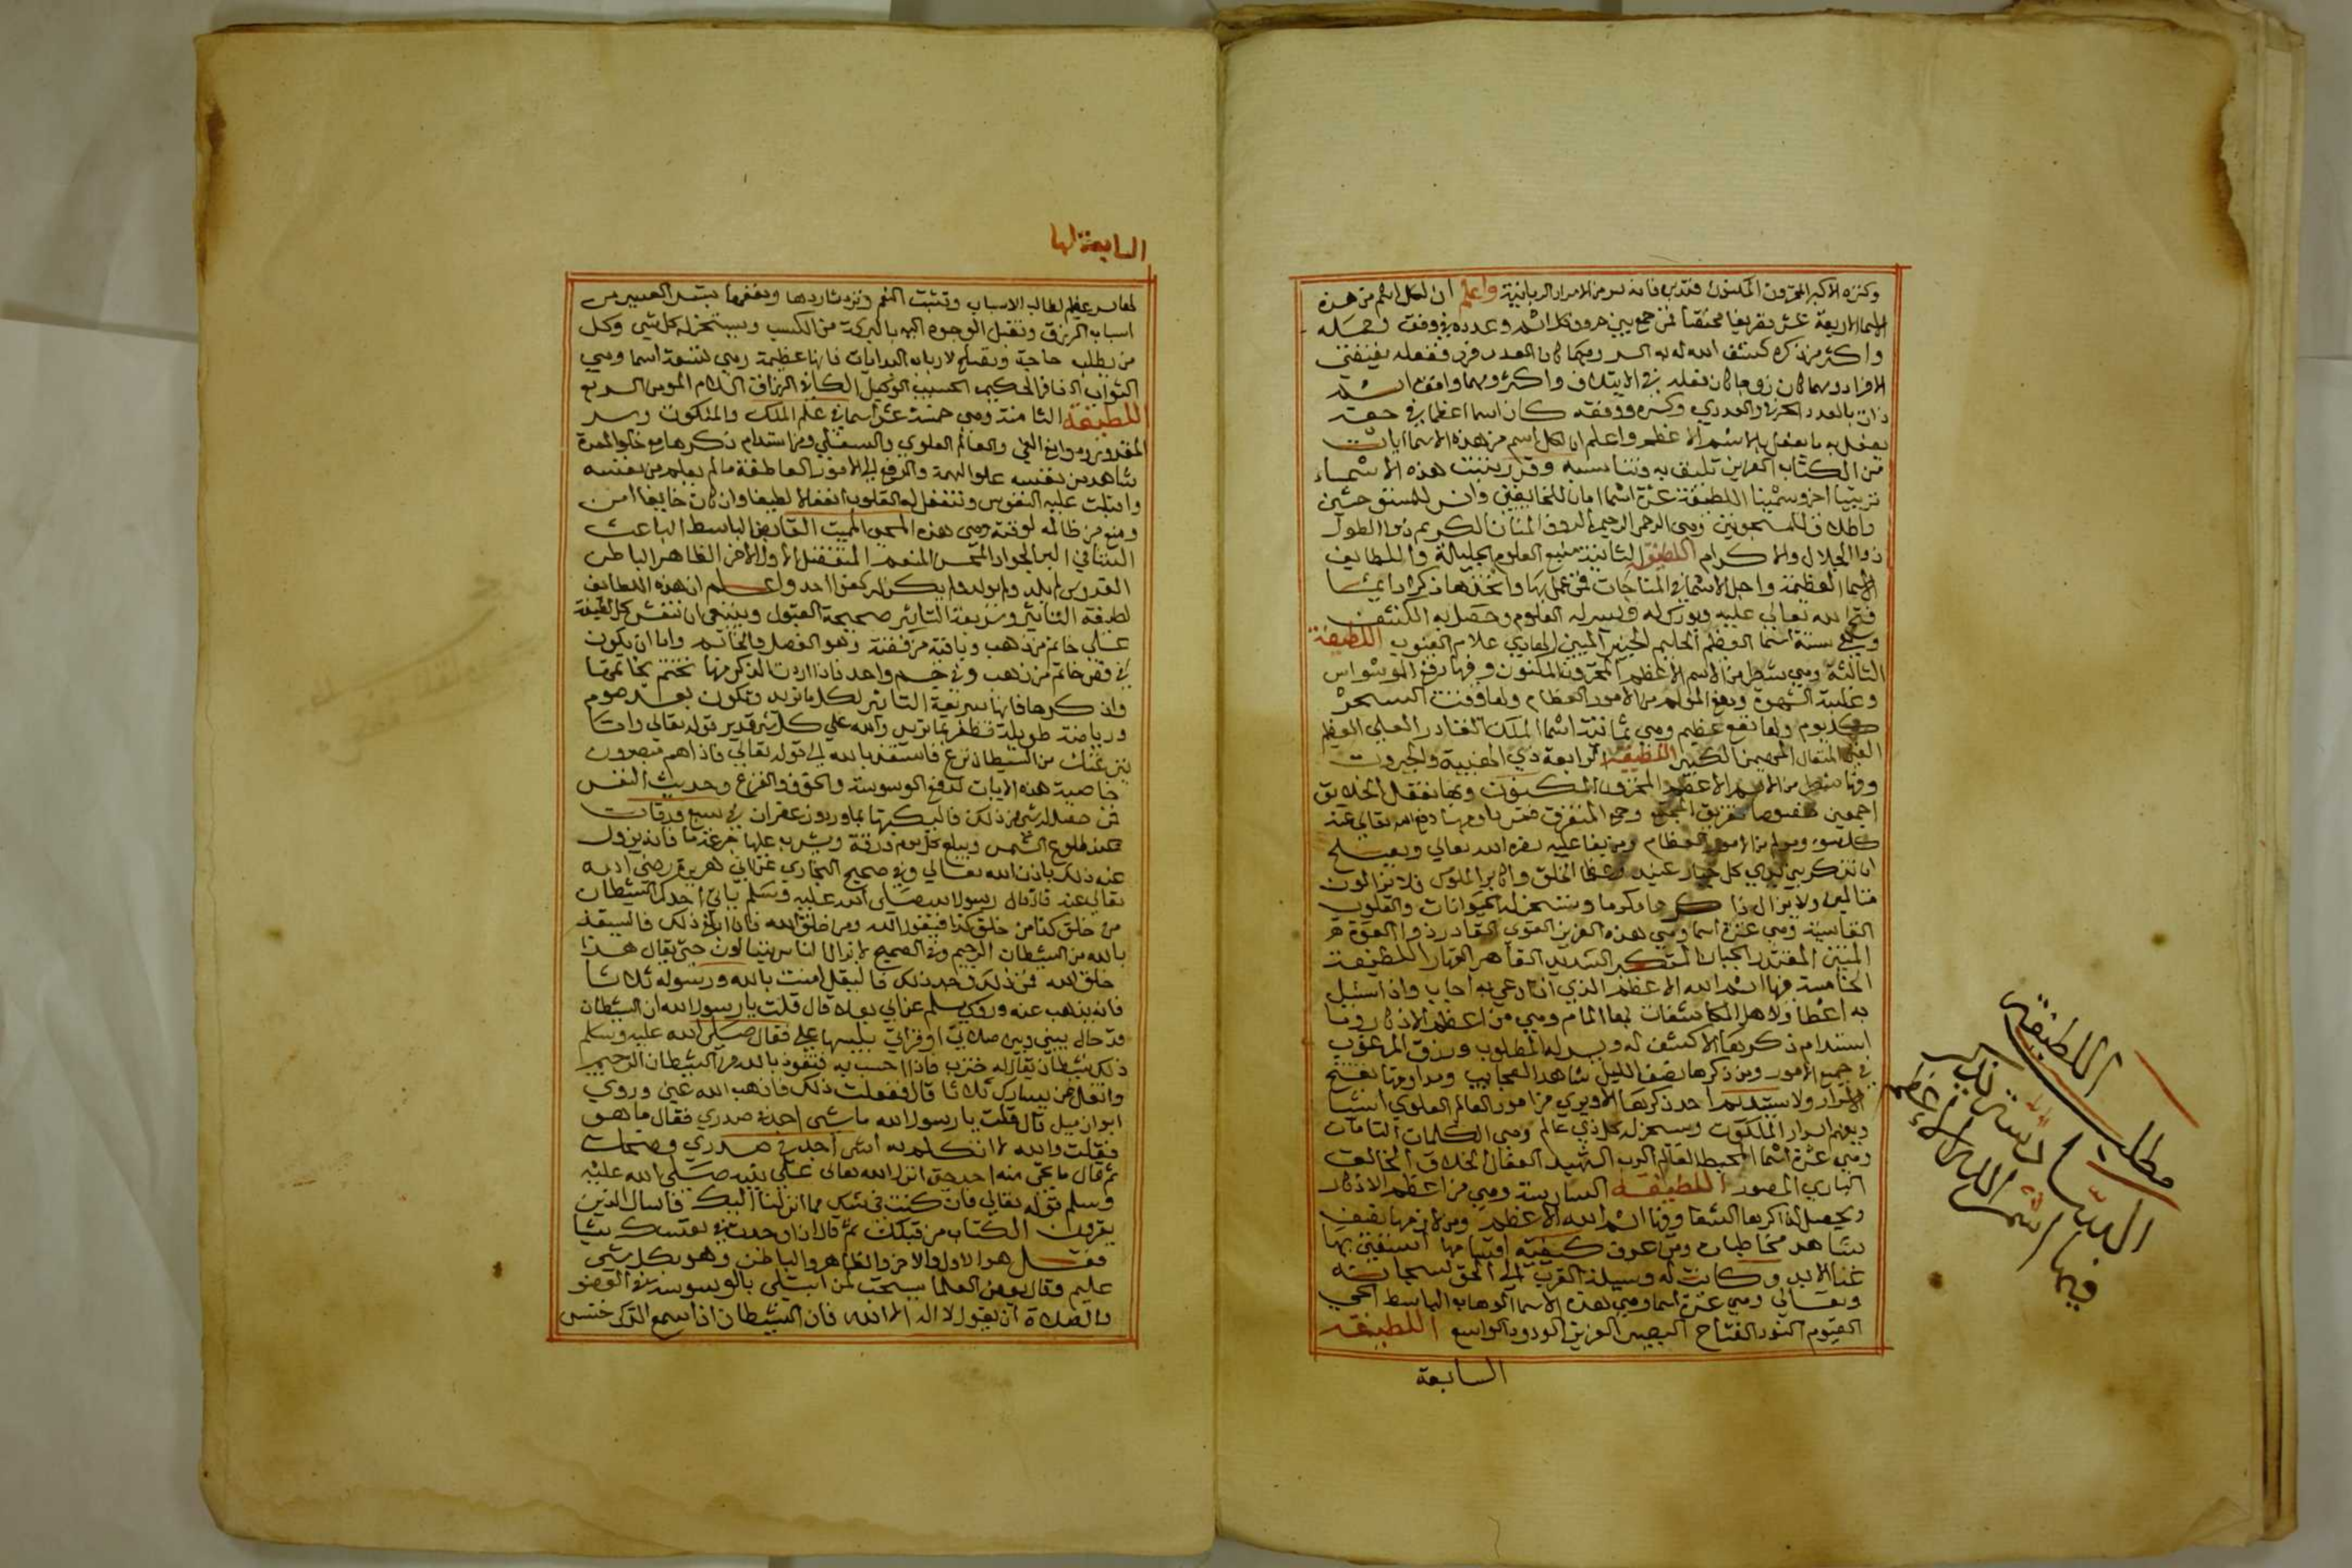 وكنزه الاكبر المخزون المكنون فتدبر فانه سر من الاسرار الربانية واعلم ان لكل اسم من هذه
الاسما الاربعة عشر تصريفا محققا فمن جمع بين حروف كل اسم وعدده في وفق وحمله
واكثر من ذكره كشف الله له به السر ومهما كان العدد فرد ففعله يقتضي
الافراد ومهما كان زوجا كان فعله في الايتلاف واكثر ومهما وافق اسم
ذات بالعدد الحرفي والعددي وكسره ووفقه كان اسما اعظما في حقه
يفعل به ما يفعل بالاسم الاعظم واعلم ان لكل اسم من هذه الاسما ايات
من الكتاب العزيز تليق به وتناسبه وقد رتبت هذه الاسماء
ترتيبا اخر وسميتها اللطيفة عشرة اسما امان للخايفين وانس للمستوحشين
واطلاق للمسجونين وهي الرحمن الرحيم الروف المنان الكريم ذوا الطول
ذوا الجلال والاكرام اللطيفة الثانية منبع العلوم الجليلة واللطايف
الاسما العظيمة واجل الاسما في المناجات فمن عمل بها واتخذها ذكرا دايما
فتح الله تعالي عليه وبورك له ويسر له العلوم وحصل به الكشف
وهي ستة اسما العظيم الحليم الخبير المبين الهادي علام الغيوب اللطيفة
الثالثة وهي شطر من الاسم الاعظم المخزون المكنون وفيها رفع الوسواس
وغلبة الشهوة ودفع المولم من الامور العظام ولها وقت السحر
كل يوم ولها نفع عظيم وهي ثمانية اسما الملك القادر العلي العظيم
الغني المتعال المهيمن الكبير اللطيفة الرابعة ذي الهيبة والجبروت
وفيها شطر من الاسم الاعظم المخزون المكنون وبها تفعل الخلايق
اجمعين خصوصا تفريق المجتمع وجمع المتفرق فمن داوم بها دفع الله تعالي عنه
كل سوء ومولم من الامور العظام ومن بغا عليه نصره الله تعالي ويصلح
ان تذكر بين يدي كل جبار عنيد وعظما الخلق واكابر الملوك فلا يزالون
متاليفين ولا يزال ذاكرها مكرما وتسخر له الحيوانات والقلوب
القاسية وهي عشرة اسما وهي هذه العزيز القوي القادر ذوا القوة
المتين المقتدر الجبار المتكبر الشديد القاهر القهار اللطيفة
الخامسة فيها اسم الله الاعظم الذي اذا دعي به اجاب واذا سئل
به اعطا ولاهل المكاشفات بها المام وهي من اعظم الاذكار وما
استدام ذكرها الا كشف له ويسر له المطلوب ورزق المرغوب
في جميع الامور ومن ذكرها نصف الليل شاهد العجايب ومداومتها تفتح
الاسرار ولا يستديم احد ذكرها الا ويري من امور العالم العلوي اشيا
ويفهم اسرار الملكوت وتسخر له كل ذي عالم وهي الكلمات التامات
وهي عشرة اسما المحيط العالم الرب الشهيد الفعال الخلاق الخالق
الباري المصور اللطيفة السادسة وهي من اعظم الاذكار
ويحصل لذاكرها الشفا وفيها اسم الله الاعظم ومن لازمها بقيض
شاهد مخاطبات ومن عرف كيفية اقتسامها استغني بها
غنا الابد وكانت له وسيلة القرب الي الحق سبحانه
وتعالي وهي عشرة اسما وهي هذه الاسما الوهاب الباسط الحي
القيوم النور الفتاح البصير العزيز الودود الواسع اللطيفة
السابعة
مطلب اللطيفة
السادسة لذاكر
فيها اسم الله الاعظم
السابعة لها
لها سر عظيم لطالب الاسباب وتثبت النعم وترد شاردها وبعضها تيسر العسير من
اسباب الرزق وتقبل الوجوه اليه بالبركة من الكسب ويسخر له كل شي وكل
من يطلب حاجة وتصلح لارباب البدايات فانها عظيمة وهي تسعة اسما وهي
التواب الغافر الحكيم الحسيب الوكيل الكافي الرزاق السلام المومن السريع
اللطيفة الثامنة وهي خمسة عشر اسما في علم الملك والملكوت وسر
المقدورر ومواقع الغي والعالم العلوي والسفلي ومن استدام ذكرها مع خلو المعدة
شاهد من نفسه علو الهمة والرفع الي الامور العاطفة ما لم يعلم من نفسه
واقبلت عليه النفوس وتنفعل له القلوب انفعالا لطيفا وان كان خايفا امن
ومنع من ظالمه لوقته وهي هذه المحيي المميت القابض الباسط الباعث
الشافي البر الجواد المحسن المنعم المتفضل الاول الاخر الظاهر الباطن
القدوس لم يلد ولم يولد ولم يكن له كفوا احد واعلم ان هذه اللطايف
لطيفة التاثير وسريعة التاثير صحيحة القبول وينبغي ان تنقش كل لطيفة
علي خاتم من ذهب وباقية من فضة وهو الفصل والخاتم واما ان يكون
في فص خاتم من ذهب وفي جسم واحد فاذا اردت الذكر منها تختم بخاتمها
واذكرها فانها سريعة التاثير لكل ما تريد وتكون بعد صوم
ورياضة طويلة فتظفر بما تريد والله علي كل شي قدير قوله تعالي واما
ينزغنك من الشيطان نزغ فاستعذ بالله الي قوله تعالي فاذا هم مبصرون
خاصية هذه الايات لدفع الوسوسة والخوف والفزع وحديث النفس
فمن حصل له شي من ذلك فاليكتبها بماورد وزعفران في سبع ورقات
عند طلوع الشمس ويبلع كل يوم ورقة ويشرب عليها جرعة ما فانه يزول
عنه ذلك باذن الله تعالي وفي صحيح البخاري عن ابي هريرة رضي الله
تعالي عنه قال قال رسول الله صلي الله عليه وسلم ياتي احدكم الشيطان
من خلق كذا من خلق كذا فيقول الله ومن خلق الله فاذا بلغ ذلك فاليستعذ
بالله من الشيطان الرجيم وفي الصحيح لا يزال الناس يتسالون حتي يقال هذا
خلق الله فمن ذلك وجد ذلك فاليقل امنت بالله ورسوله ثلاثا
فانه يذهب عنه وروي مسلم عن ابي العلا قال قلت يا رسول الله ان الشيطان
قد حال بيني وبين صلاتي وقراتي يلبسها علي فقال صلي الله عليه وسلم
ذلك شيطان يقال له خنزب فاذا احسست به فتعوذ بالله من الشيطان الرجيم
واتفل عن يسارك ثلاثا قال ففعلت ذلك فاذهب الله عني وروي
ابوازميل قال قلت يا رسول الله ما شي اجده في صدري فقال ما هو
فقلت والله لا اتكلم به اشي اجده في صدري وضحك
ثم قال ما نجي منه احد حتي انزل الله تعالي علي نبيه صلي الله عليه
وسلم قوله تعالي فان كنت في شك مما انزلنا اليك فاسال الذين
يقرون الكتاب من قبلك ثم قال اذا وجدت في نفسك شيا
فقل هو الاول والاخر والظاهر والباطن وهو بكل شي
عليم وقال بعض العلما يستحب لمن ابتلي بالوسوسة في الوضو
والصلاة ان يقول لا اله الا الله فان الشيطان اذا سمع الذكر خنس